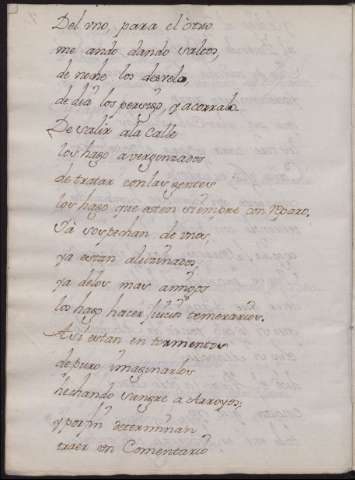 Del vno, para el otro
me ando dando saltos,
de noche los desvelo,
de dia los persigo, y acorralo.
De salir ala calle
los hago avergonzados
de tratar conlas gentes
los hago que esten siempre con reparo.
Yá sospechan de vnos,
ya estan alucinados,
ya delos mas amigos
los hago hacer juicios temerarios.
Asi estan en tormentos
de puro imaginarlos
hechando sangre a Arroyos,
y por fin determinan
traer vn Comentario